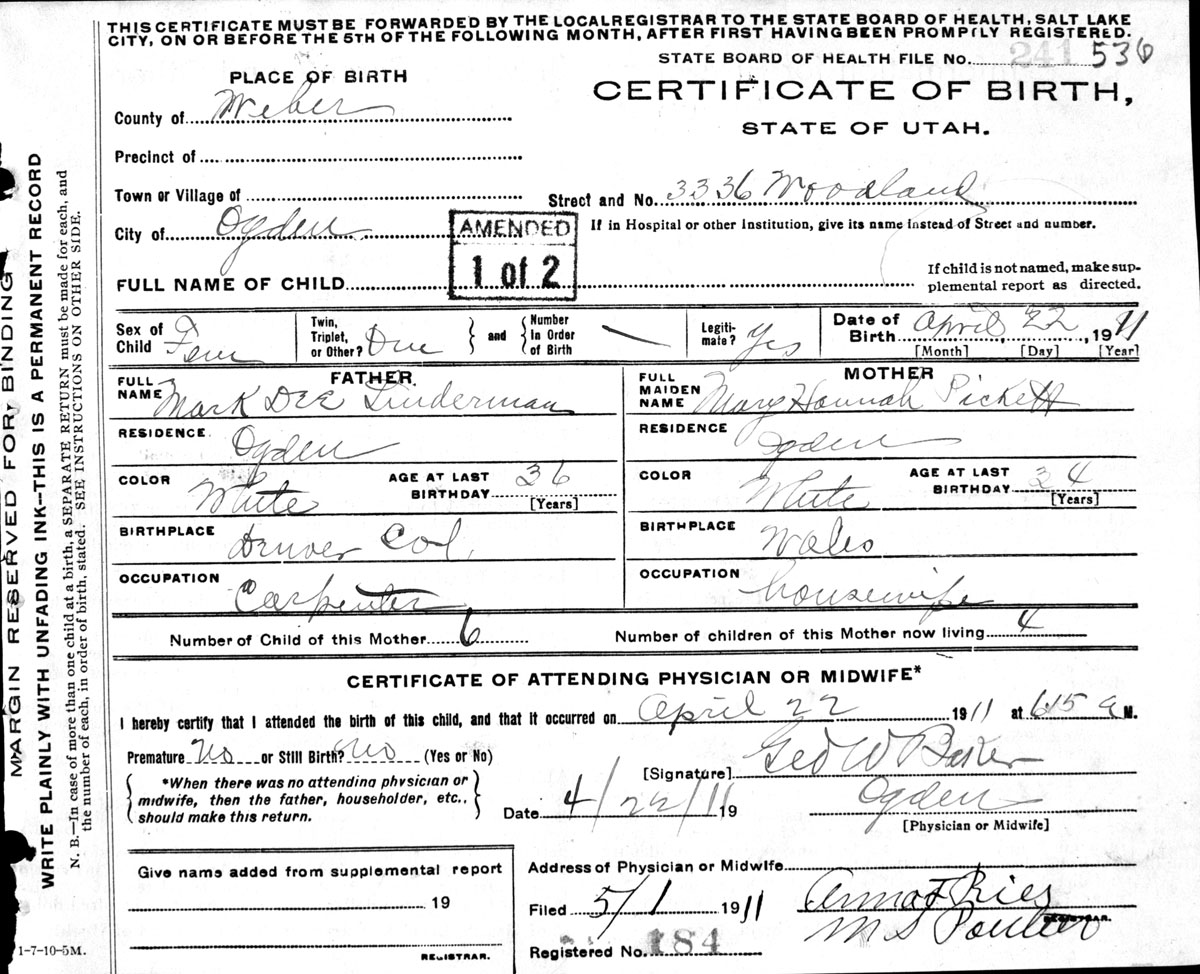 THIS CERTIFICATE MUST BE FORWARDED BY THE LOCAL REGISTRAR TO THE STATE BOARD OF HEALTH, SALT LAKE
CITY, ON OR BEFORE THE 5TH OF THE FOLLOWING MONTH, AFTER FIRST HAVING BEEN PROMPTLY REGISTERED.
STATE BOARD OF HEALTH FILE No. 241 536
PLACE OF BIRTH
CERTIFICATE OF BIRTH,
STATE OF UTAH.
County of Weber
Precinct of
Town or Village of
Street and No. 3336 Woodland
City of Ogden
If in Hospital or other Institution, give its name instead of Street and number.
AMENDED
1 of 2
FULL NAME OF CHILD
If child is not named, make sup-
plemental report as directed.
Sex of Child Fem
Twin, Triplet, or Other? One
and
Number In Order of Birth
Legiti-
mate? Yes
Date of Birth April 22, 1911
[Month] [Day] [Year]
FATHER
FULL NAME Mark Dee Linderman
RESIDENCE Ogden
COLOR White
AGE AT LAST BIRTHDAY 36
[Years]
BIRTHPLACE Denver Col.
OCCUPATION Carpenter
MOTHER
FULL MAIDEN NAME Mary Hannah Pickett
RESIDENCE Ogden
COLOR White
AGE AT LAST BIRTHDAY 34
[Years]
BIRTHPLACE Wales
OCCUPATION housewife
Number of Child of this Mother 6
Number of children of this Mother now living 4
CERTIFICATE OF ATTENDING PHYSICIAN OR MIDWIFE*
I hereby certify that I attended the birth of this child, and that it occurred on April 22 1911 at 6:15 a M.
Premature No or Still Birth? No (Yes or No)
*When there was no attending physician or
midwife, then the father, householder, etc.,
should make this return.
[Signature] Geo W Baker
Date 4/22/11 19
Ogden
[Physician or Midwife]
Give name added from supplemental report
19
REGISTRAR.
Address of Physician or Midwife
Filed 5/1 1911
Anna F Ries
M S Poulter
REGISTRAR.
Registered No. 184
1-7-10-5M.
MARGIN RESERVED FOR BINDING
WRITE PLAINLY WITH UNFADING INK--THIS IS A PERMANENT RECORD
N. B.—In case of more than one child at a birth, a SEPARATE RETURN must be made for each, and
the number of each, in order of birth, stated. SEE INSTRUCTIONS ON OTHER SIDE.